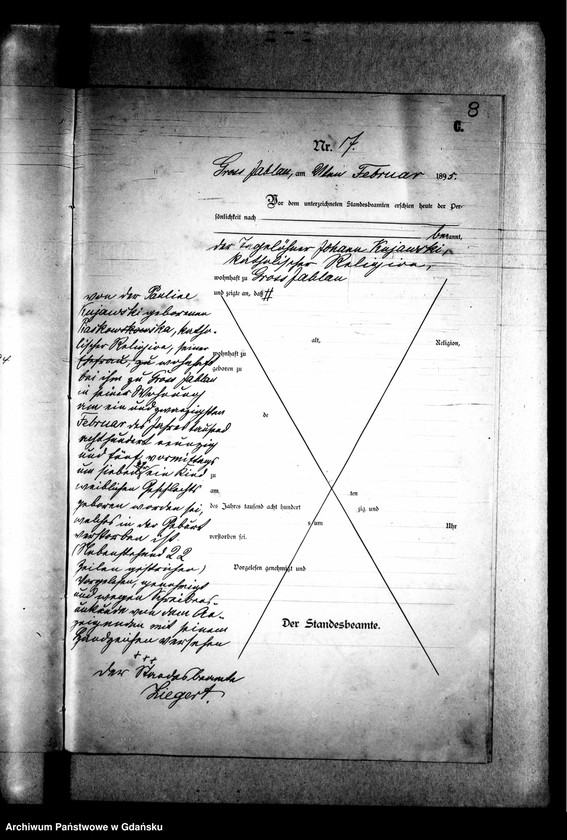 8
C.
Nr. 17.
Gross Jablau, am ten Februar 1895.
Vor dem unterzeichneten Standesbeamten erschien heute der Per-
sönlichkeit nach
bekannt,
der Tagelöhner Johann Kujawski,
katholischer Religion,
wohnhaft zu Gross Jablau
und zeigte an, daß #
von der Pauline
Kujawski geborenen
katho-
lischer Religion, seiner
Ehefrau, zu wohnhaft
bei ihm zu Gross Jablau
in seiner Wohnung
am ein und zwanzigsten
Februar des Jahres tausend
achthundert neunzig
und fünf, vormittags
um sieben ein Kind
weiblichen Geschlechts
geboren worden sei,
welches in der Geburt
verstorben ist.
(Nebenstehend 22
Zeilen gestrichen)
Vorgelesen, genehmigt
und wegen Schreibens-
unkunde von dem An-
zeigenden mit seinem
Handzeichen versehen
+++
Der Standesbeamte
Ziegert.
alt, Religion,
wohnhaft zu
geboren zu
de
zu
am ten
des Jahres tausend acht hundert zig und
s um Uhr
verstorben sei.
Vorgelesen, genehmigt und
Der Standesbeamte.
Archiwum Państwowe w Gdańsku